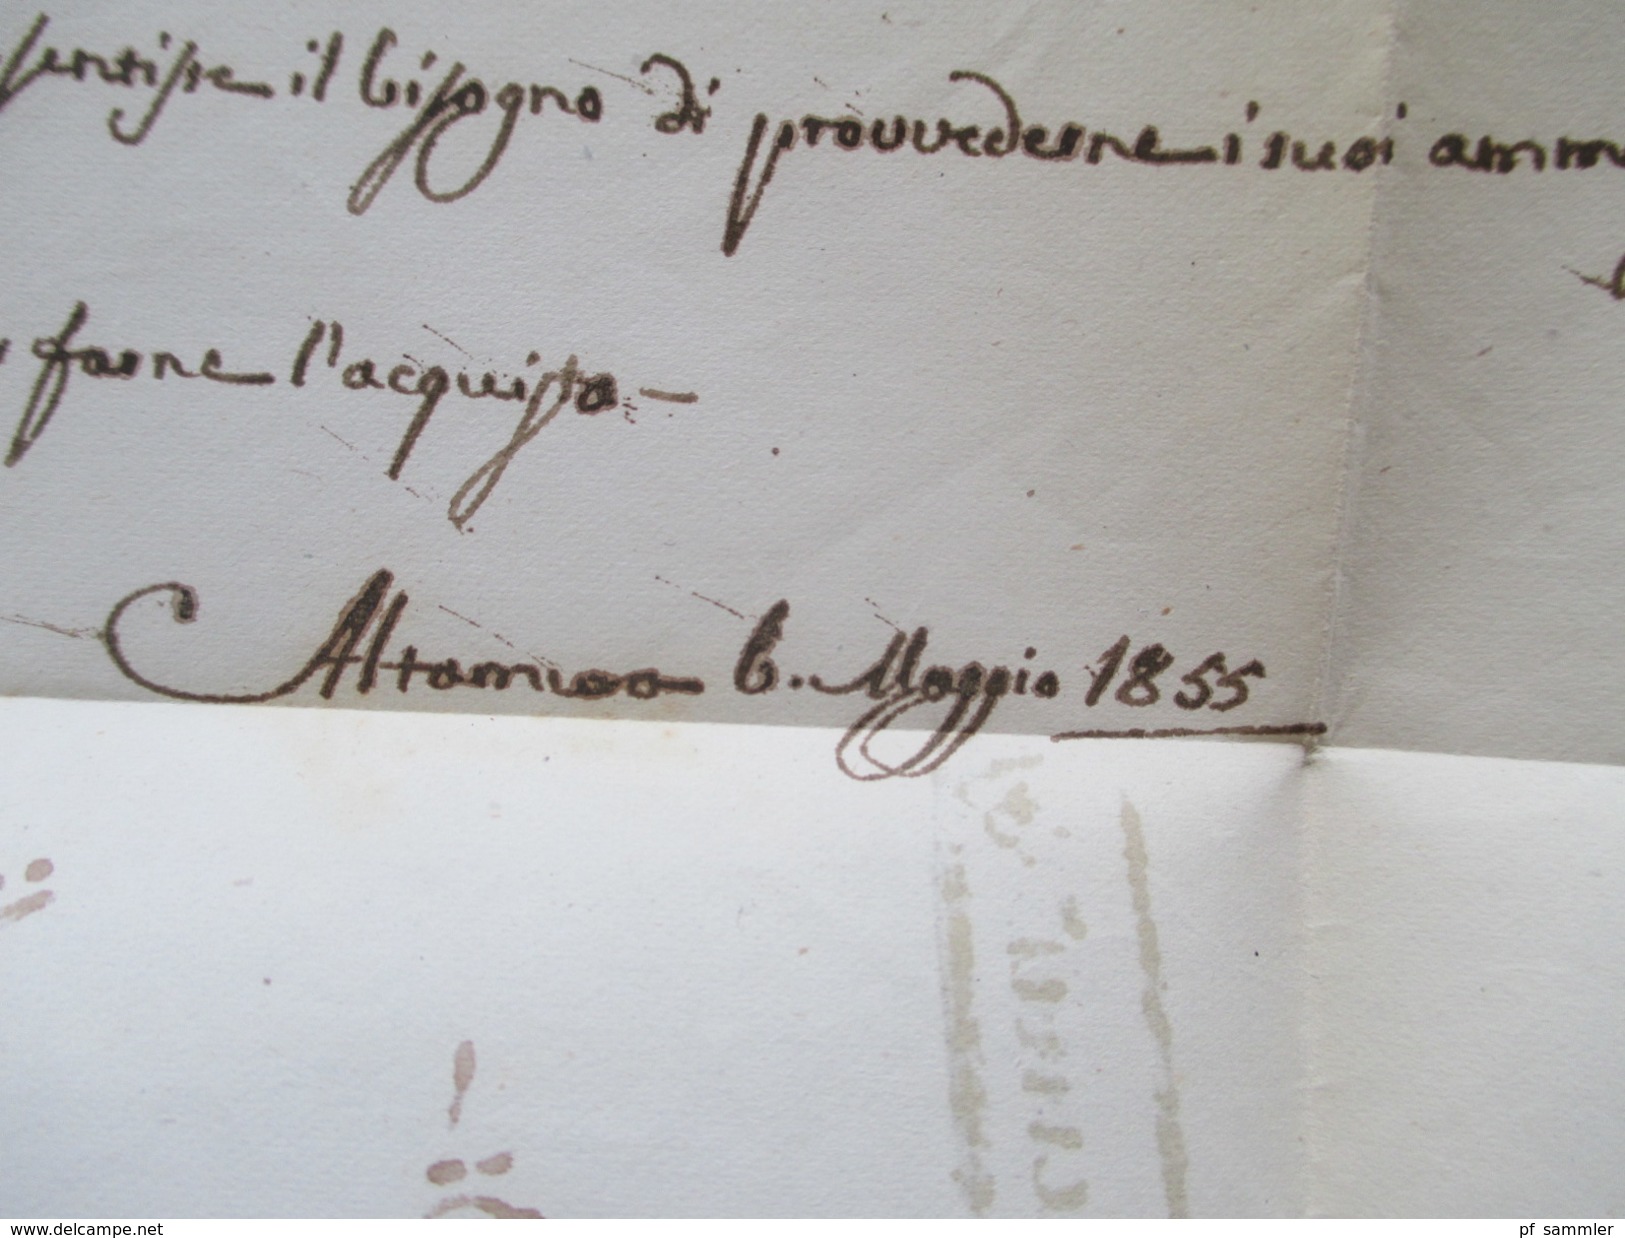 sentisse il bisogno di provvederne i suoi ammi
farne l'acquisto —
Altamura 6. Maggio 1855
www.delcampe.net
pf_sammler